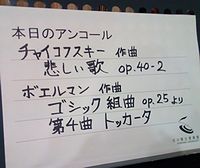 本日のアンコール
チャイコフスキー 作曲
悲しい歌 op.40-2
ボエルマン 作曲
ゴシック組曲 op.25より
第4曲 トッカータ